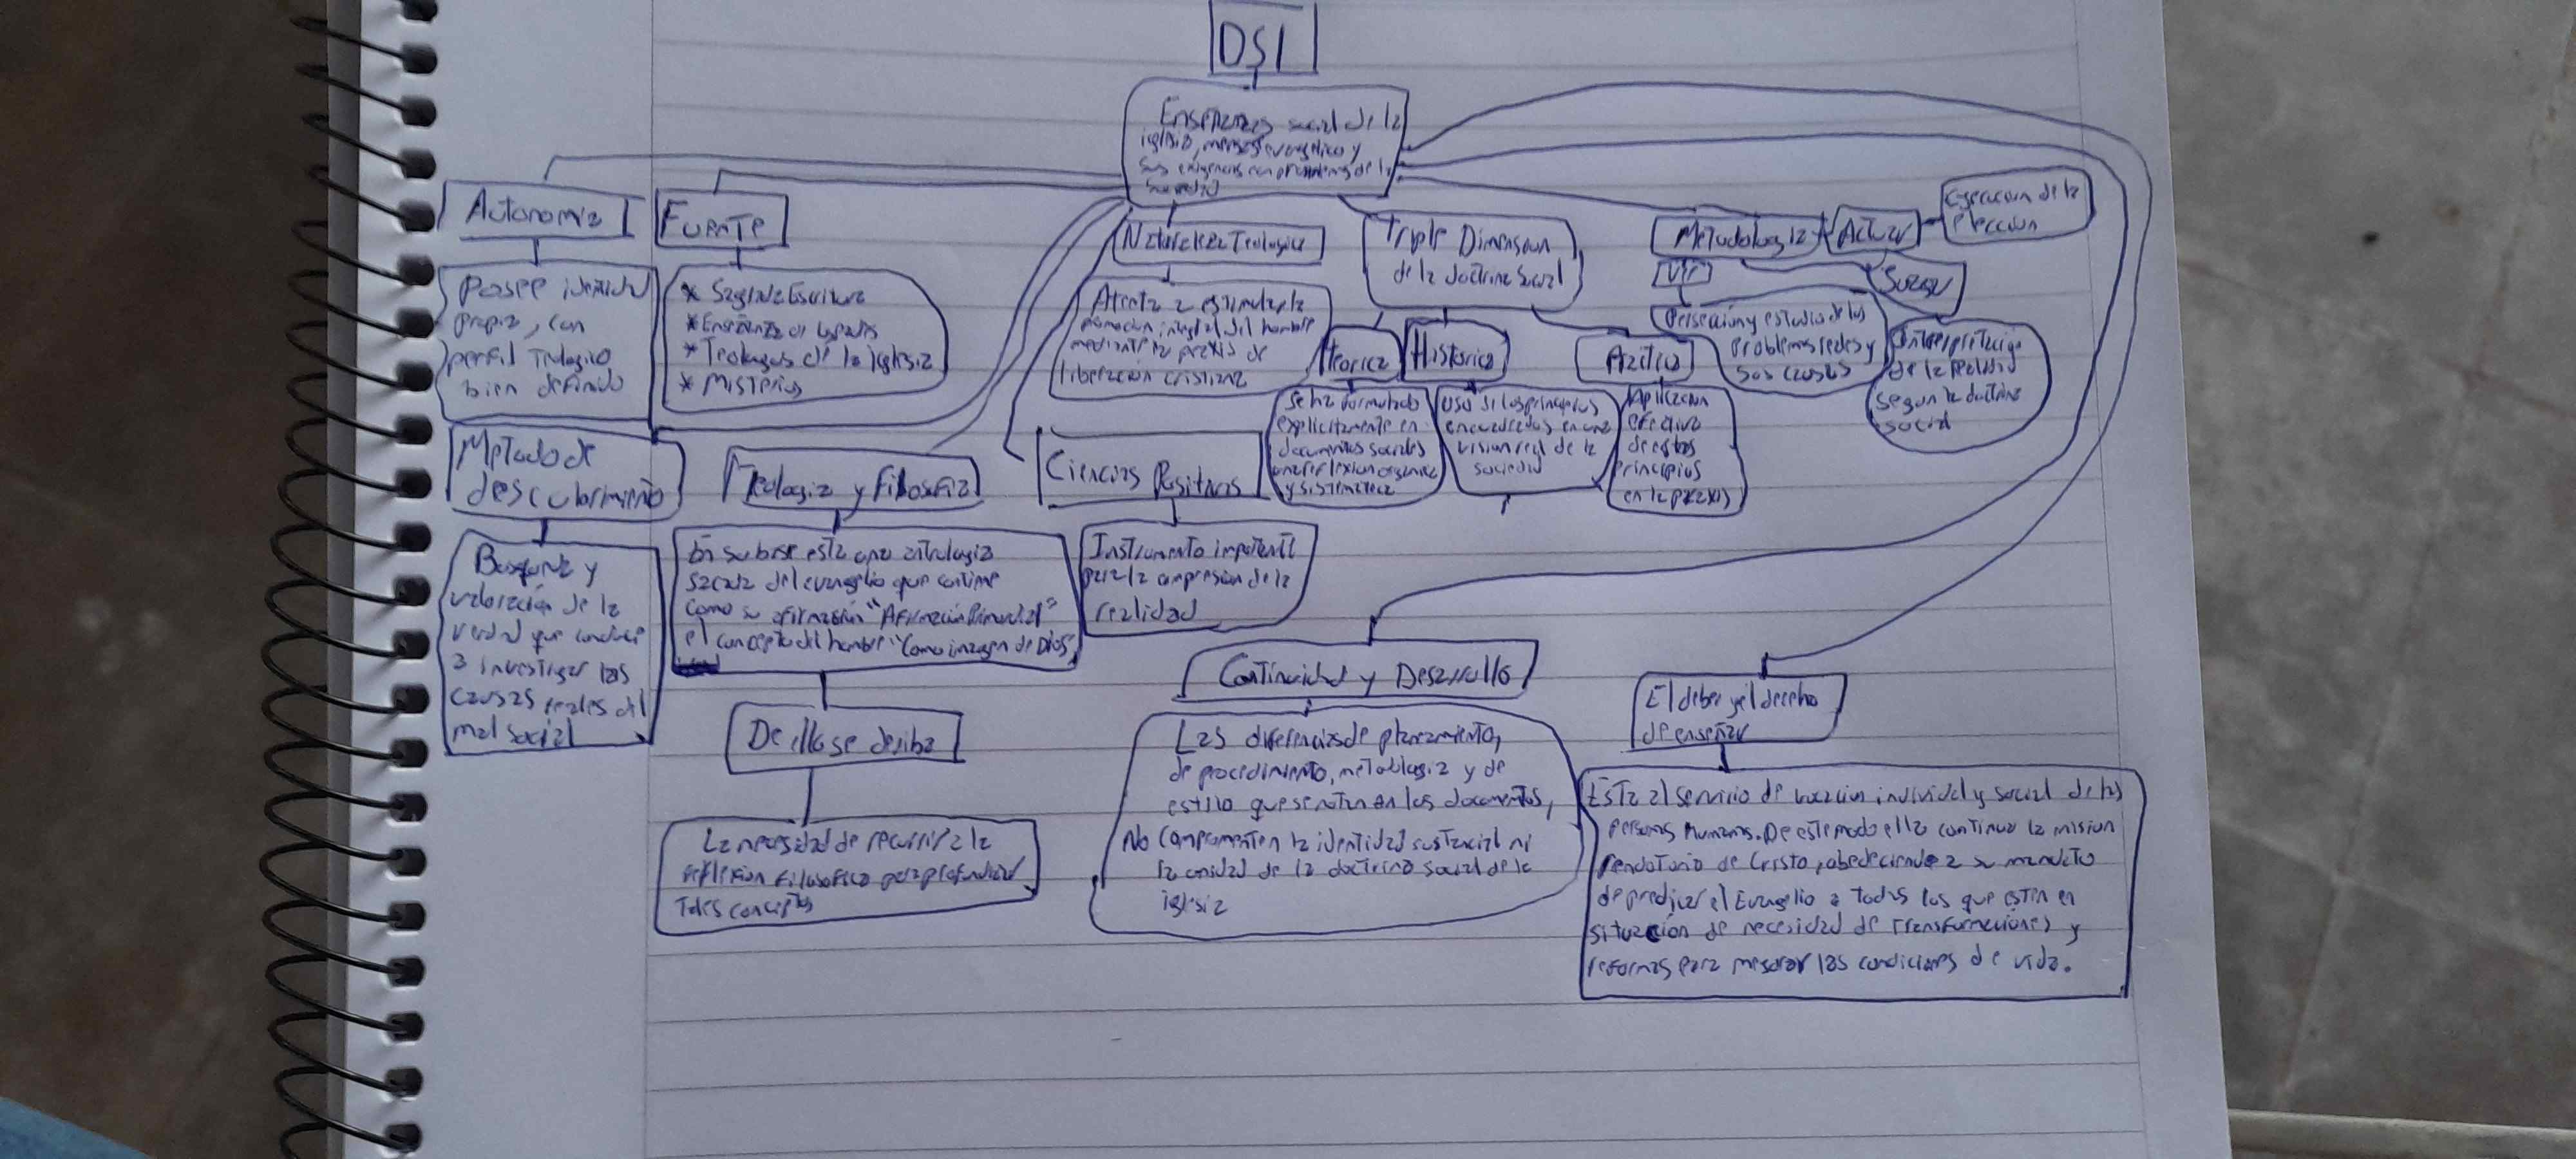 DSI
Enseñanzas social de la
iglesia, mensaje evangelico y
sus exigencias con problemas de la
sociedad
Autonomia
Posee identidad
propia, con
perfil Teologico
bien definido
Fuente
* Sagrada Escritura
* Enseñanza de
* Teologos de la Iglesia
* Misterios
Naturaleza Teologica
estimular la
promocion integral del hombre
mediante la praxis de
liberación cristiana
Triple Dimension
de la doctrina Social
Teorica
Se ha formulado
explicitamente en
documentos sociales
una reflexion organica
y sistematica
Historica
Uso de los principios
encuadrados en una
vision real de la
sociedad
Aplicacion
efectiva
de estos
principios
en la praxis
Metodologia
Ver
y estudio de los
problemas reales y
sus causas
de la realidad
segun la doctrina
social
Actuar
Ejecucion de la
eleccion
Metodo de
descubrimiento
Busqueda y
valoración de la
verdad que conduce
a investigar las
causas reales del
mal social
Teologia y Filosofia
En su base esta una
sacada del evangelio que contiene
como su afirmación "Afirmación Primordial"
el concepto del hombre "Como imagen de Dios
De ello se deriba
La necesidad de recurrir a la
reflexion filosofica para profundizar
Tales conceptos
Ciencias Positivas
Instrumento
para la compresion de la
realidad
Continuidad y Desarrollo
Las diferencias de planeamiento,
de procedimiento, metodlogia y de
estilo que se notan en los documentos,
No comprometen la identidad sustancial ni
la unidad de la doctrina social de la
iglesia
El deber y el derecho
de enseñar
Esta al servicio de vocacion individual y social de las
personas Humanas. De este modo ella continua la mision
de Cristo, obedeciendo a su mandato
de predicar el Evangelio a todos los que estén en
situación de necesidad de transformaciones y
reformas para mejorar las condiciones de vida.